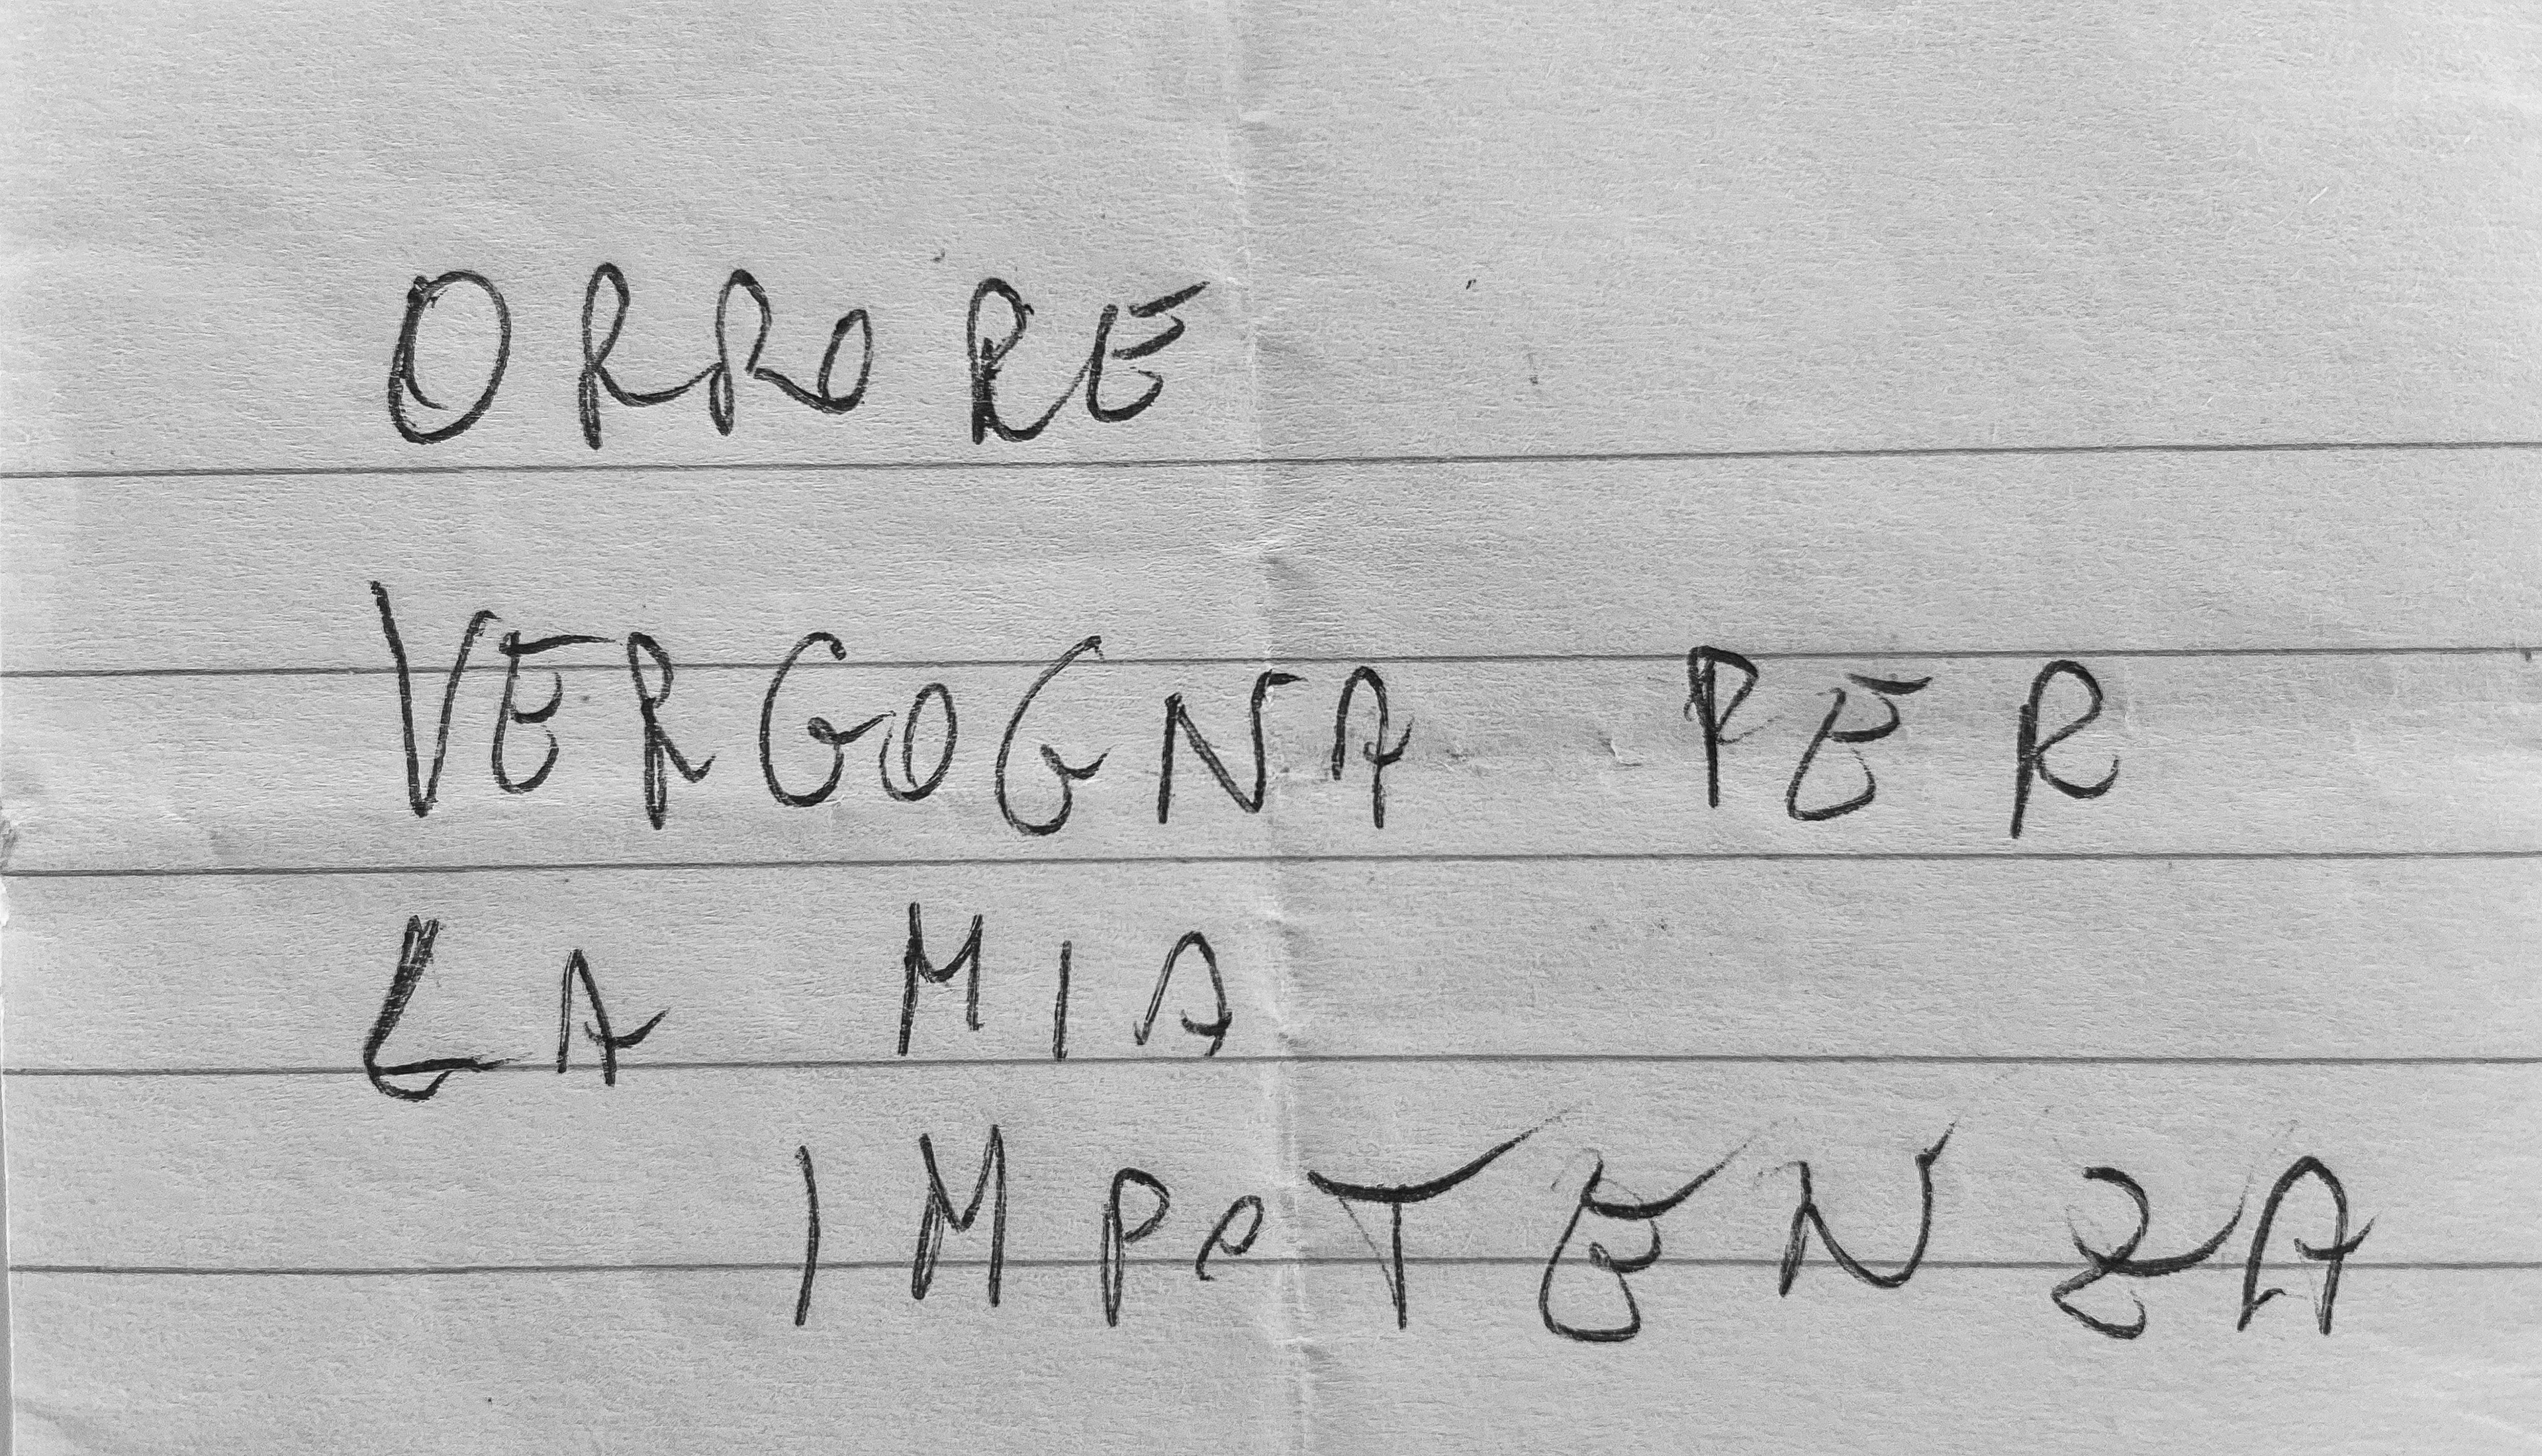 ORRORE
VERGOGNA PER
LA MIA
IMPOTENZA